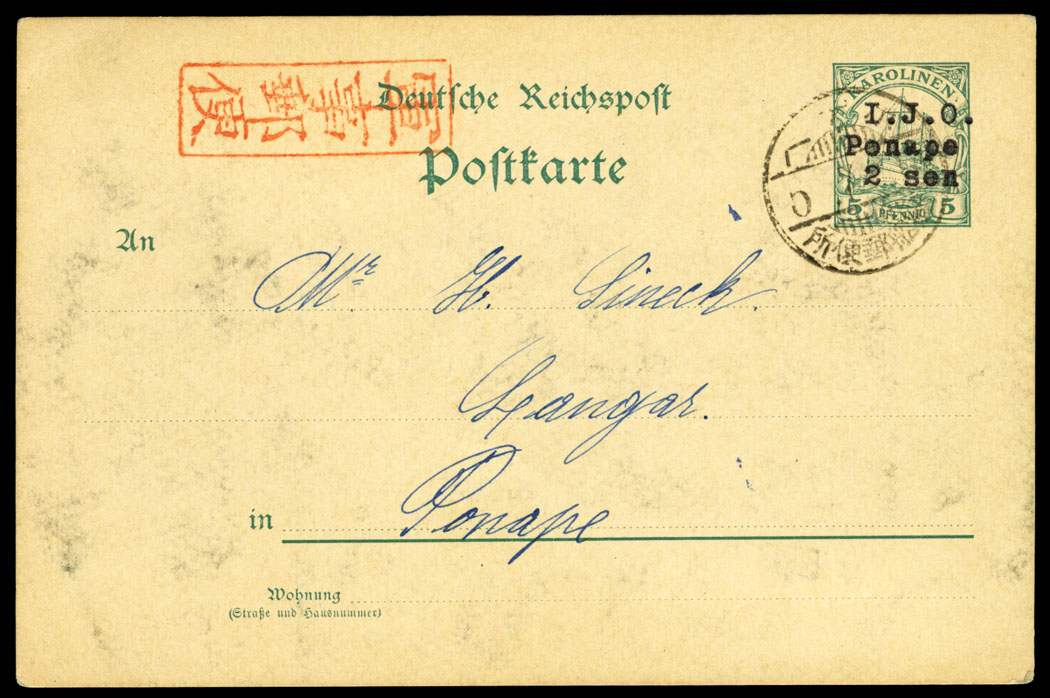 軍事郵便
Deutsche Reichspost
Postkarte
KAROLINEN
I.J.O.
Ponape
2 sen
5 PFENNIG 5
An
Mr. H. Lineck.
Langar.
in Ponape
Wohnung
(Straße und Hausnummer)